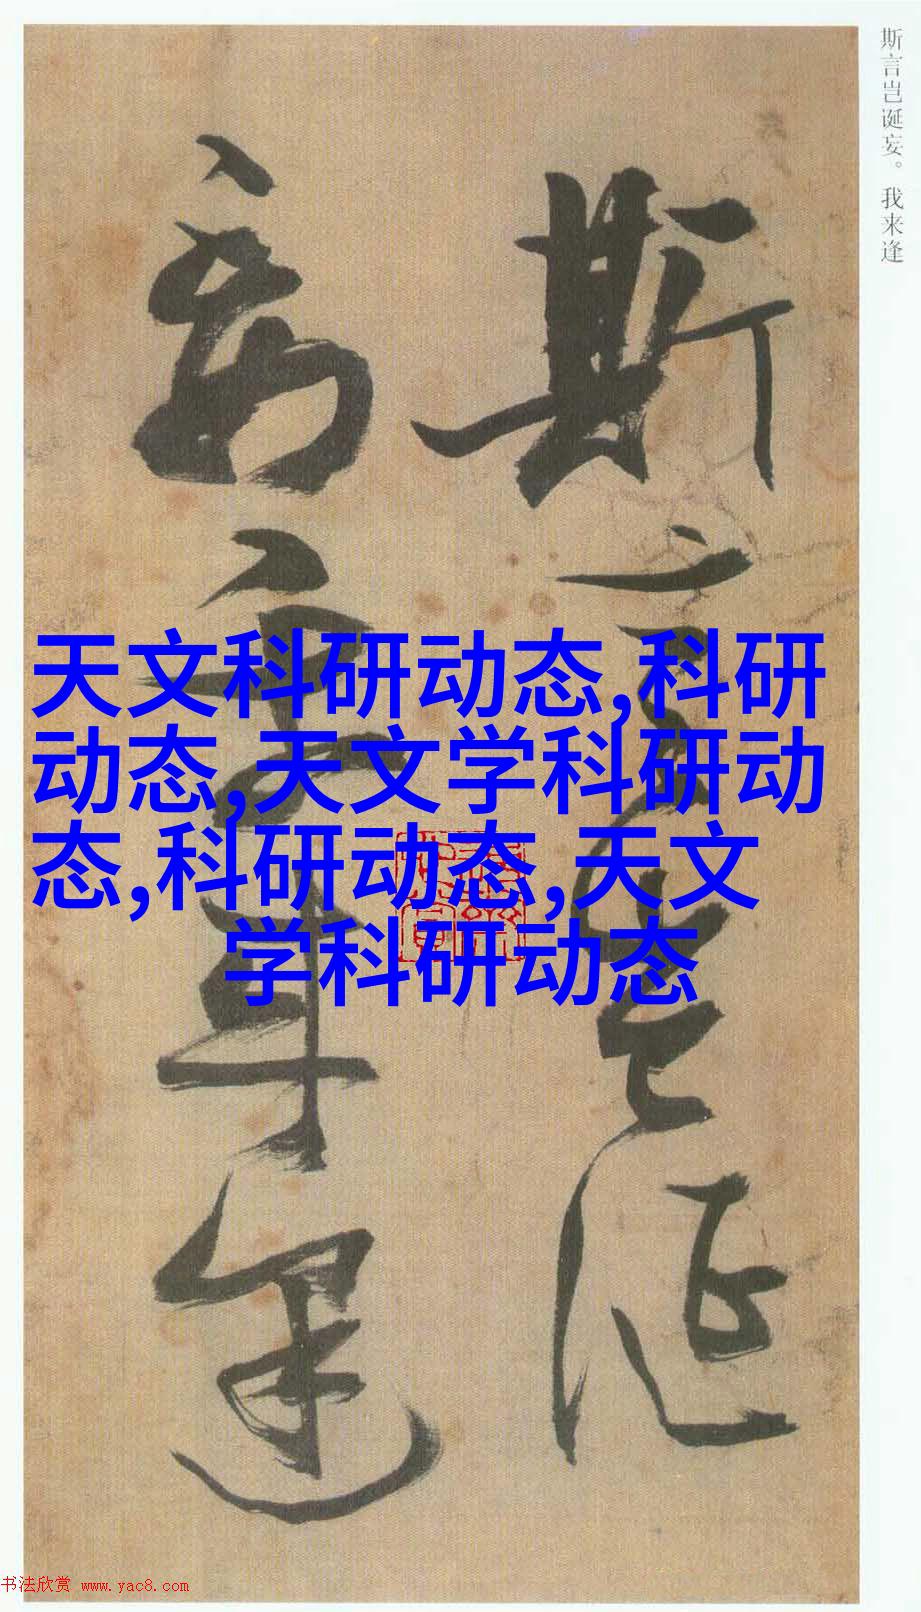 斯言岂诞妄。我来逢
斯言岂诞
妄我来逢
天文科研动态,科研
动态,天文学科研动
态,科研动态,天文
学科研动态
书法欣赏 www.yac8.com